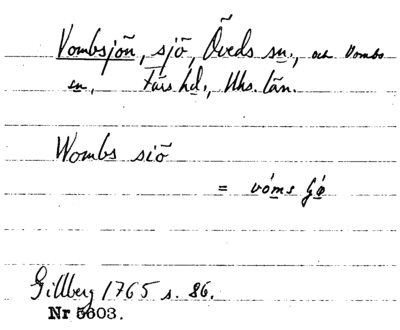 Vombsjön, sjö, Öveds sn., och Vombs
sn., Färs hd., Mhs. län.
Wombs siö
= vóms ʃǿ
Gillberg 1765 s. 86.
Nr 5603.